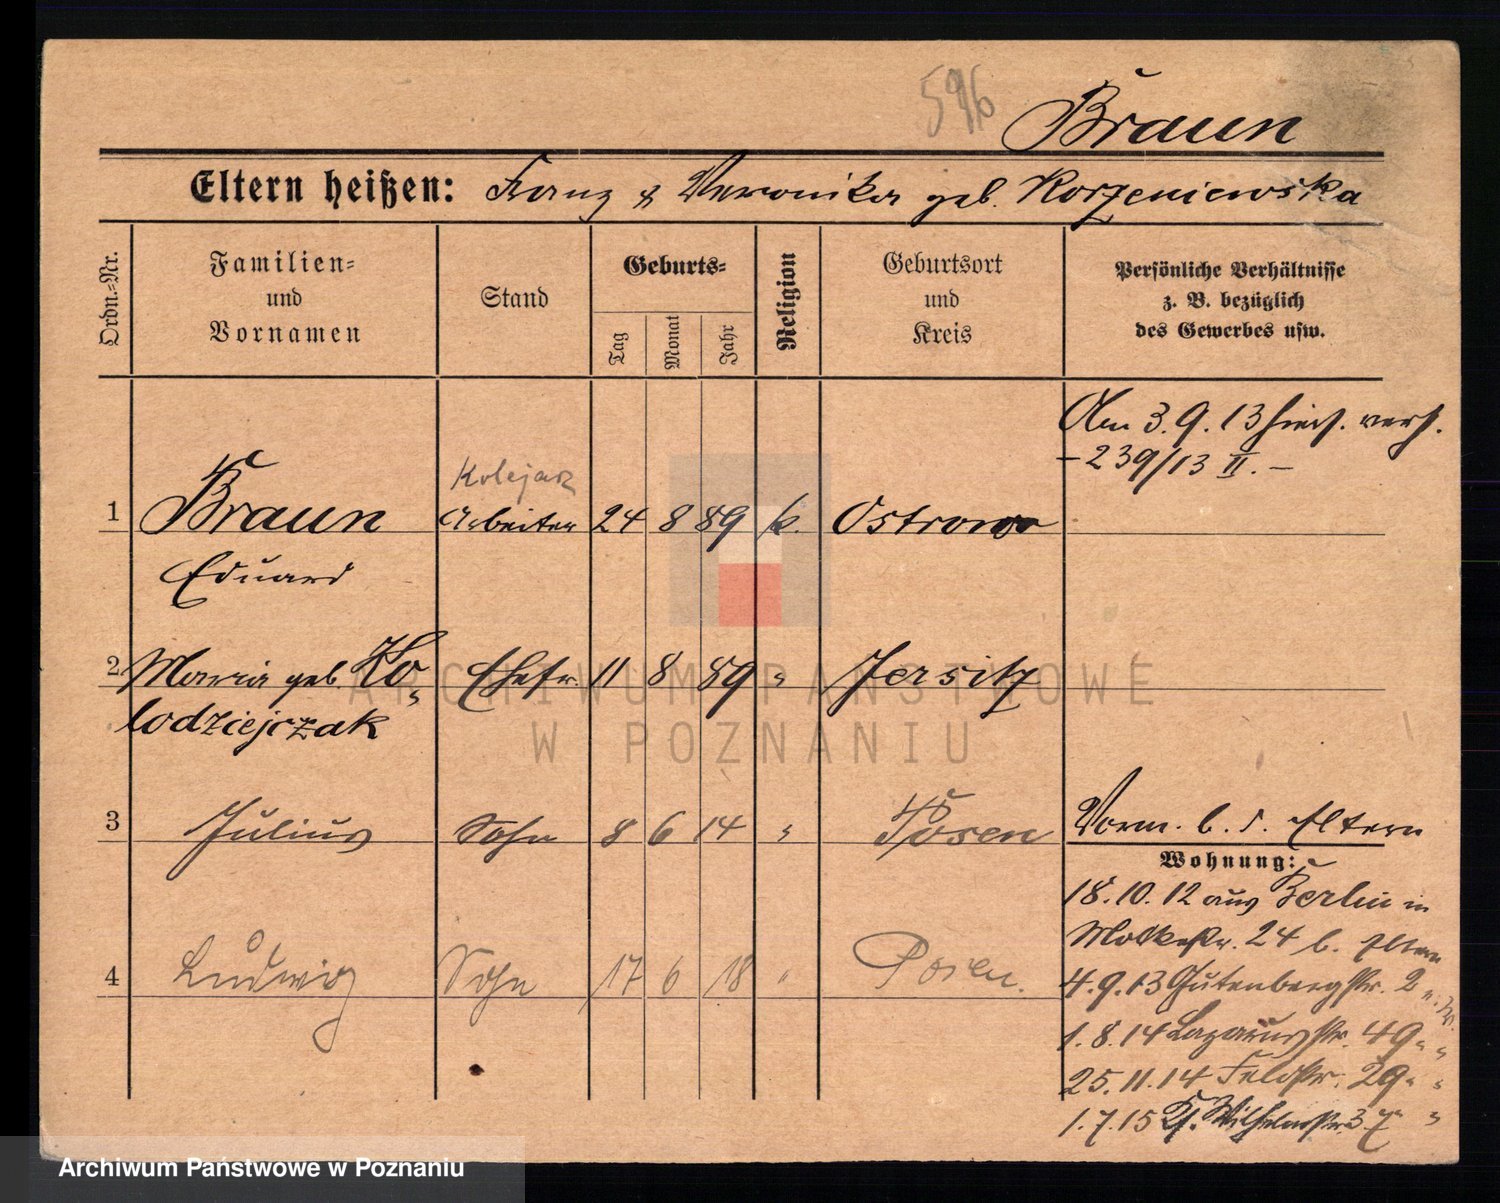 596
Braun
Eltern heißen: Franz & Veronika geb. Korzeniewska
Ordn.-Nr.
Familien-
und
Vornamen
Stand
Geburts-
Tag
Monat
Jahr
Religion
Geburtsort
und
Kreis
Persönliche Verhältnisse
z. B. bezüglich
des Gewerbes usw.
Am 3. 9. 13 hies. verh.
– 239/13 II. –
Kolejarz
1 Braun Arbeiter 24 8 89 k. Ostrowo
Eduard
2 Maria geb. Ko- Ehefr. 11 8 89 " Jersitz
lodziejczak
3 Julius Sohn 8 6 14 " Posen
Vorm. b. d. Eltern
Wohnung:
18. 10. 12 aus Berlin in
Moltkestr. 24 b. Eltern
4 Ludwig Sohn 17 6 18 " Posen.
4. 9. 13 Gutenbergstr. 2
1. 8. 14 Lazarusstr. 49 " "
25. 11. 14 Feldstr. 29 " "
1. 7. 15 Wilhelmstr. "
ARCHIWUM PAŃSTWOWE
W POZNANIU
Archiwum Państwowe w Poznaniu